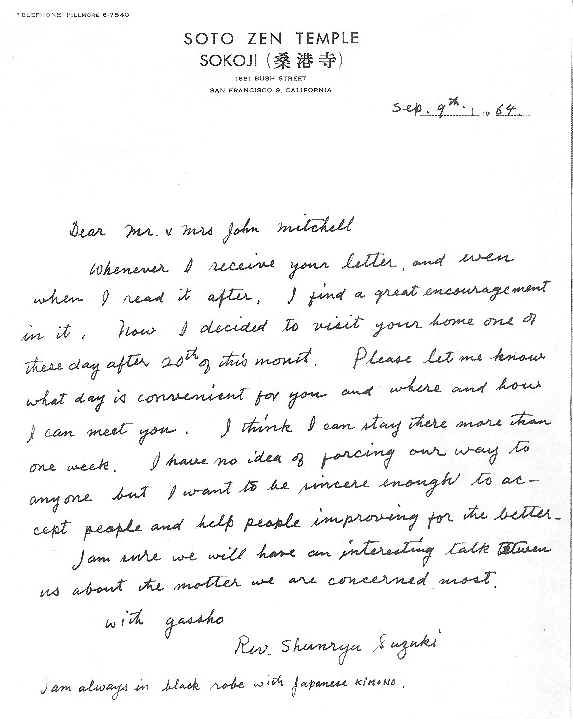 TELEPHONE FILLMORE 6-7540
SOTO ZEN TEMPLE
SOKOJI (桑港寺)
1881 BUSH STREET
SAN FRANCISCO 9, CALIFORNIA
Sep. 9th. 1964.
Dear Mr. & Mrs John Mitchell
Whenever I receive your letter, and even
when I read it after, I find a great encouragement
in it. Now I decided to visit your home one of
these day after 20th of this month. Please let me know
what day is convenient for you and where and how
I can meet you. I think I can stay there more than
one week. I have no idea of forcing our way to
anyone but I want to be sincere enough to ac-
cept people and help people improving for the better.
I am sure we will have an interesting talk between
us about the matter we are concerned most.
with gassho
Rev. Shunryu Suzuki
I am always in black robe with Japanese KIMONO.